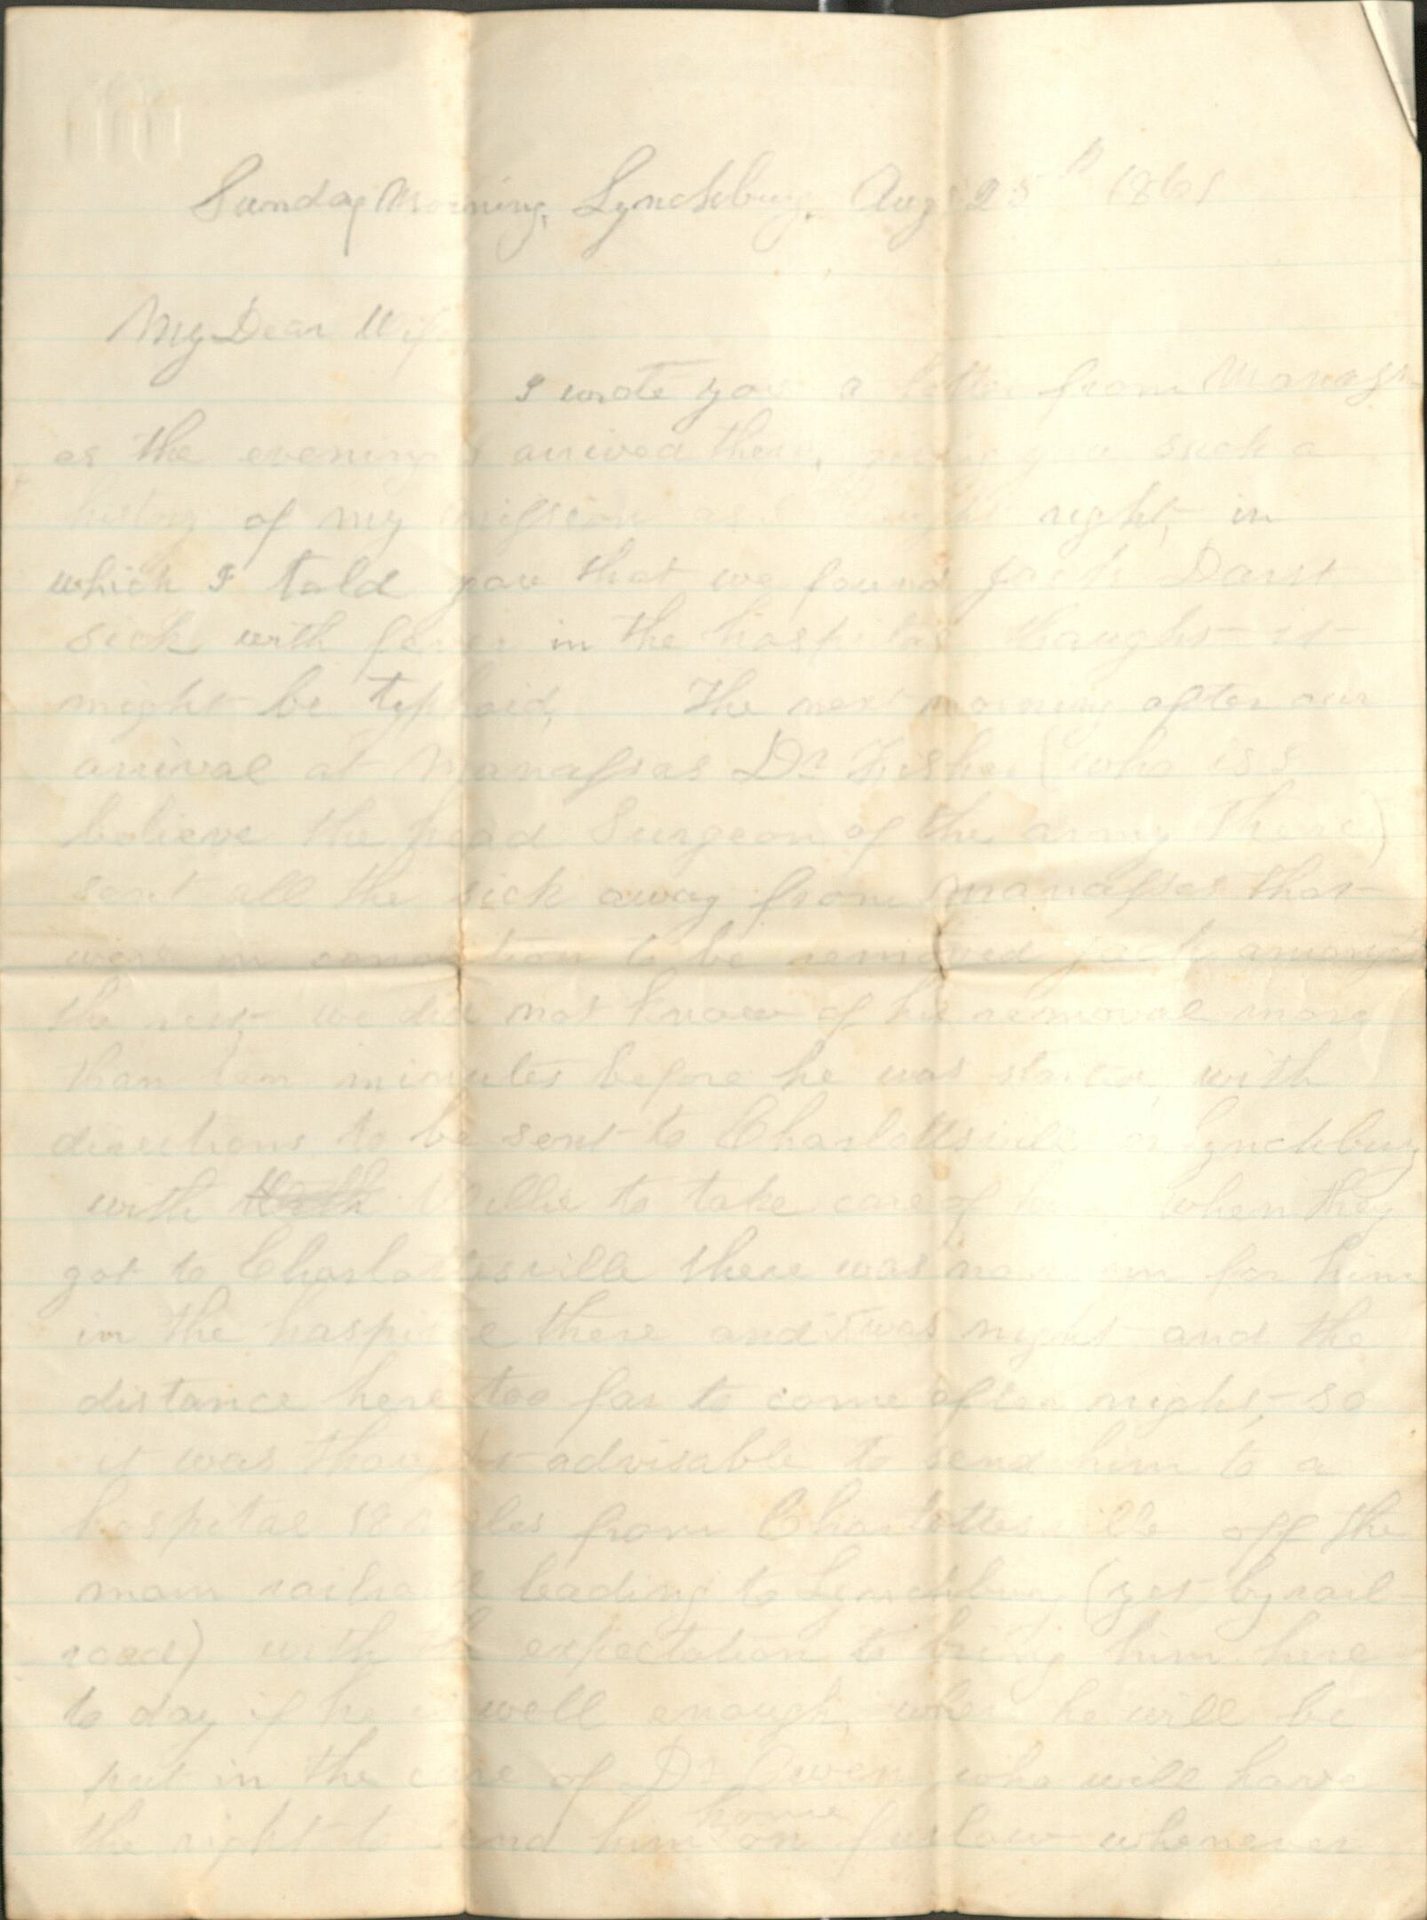 Sunday Morning, Lynchburg, Aug 25th 1861
My Dear Wife
I wrote you a letter from Manass
as the evening I arived there, you such a
history of my mission as I right, in
which I told you that we found Jack
sick with fever in the hospital thought it
might be typhoid, The next morning after our
arrival at Manassas Dr Fisher (who is I
believe the head Surgeon of the army there)
sent all the sick away from Manassas that
were in condition to be removed Jack amongst
the rest, we did not know of his removal more
than ten minutes before he was started with
directions to be sent to Charlottsville or Lynchburg
with Willie to take care of him when they
got to Charlottesville there was no room for him
in the hospital there and twas night and the
distance here too far to come after night, so
it was thought advisable to send him to a
hospital 18 miles from Charlottesville off the
main railroad leading to Lynchburg (yet by rail
road) with the expectation to bring him here
to day if he is well enough, when he will be
put in the care of Dr Owen who will have
the right to send him home on furlow whenever